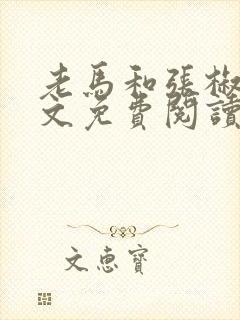 老馬和張椒
文免費閱讀
文惠寶